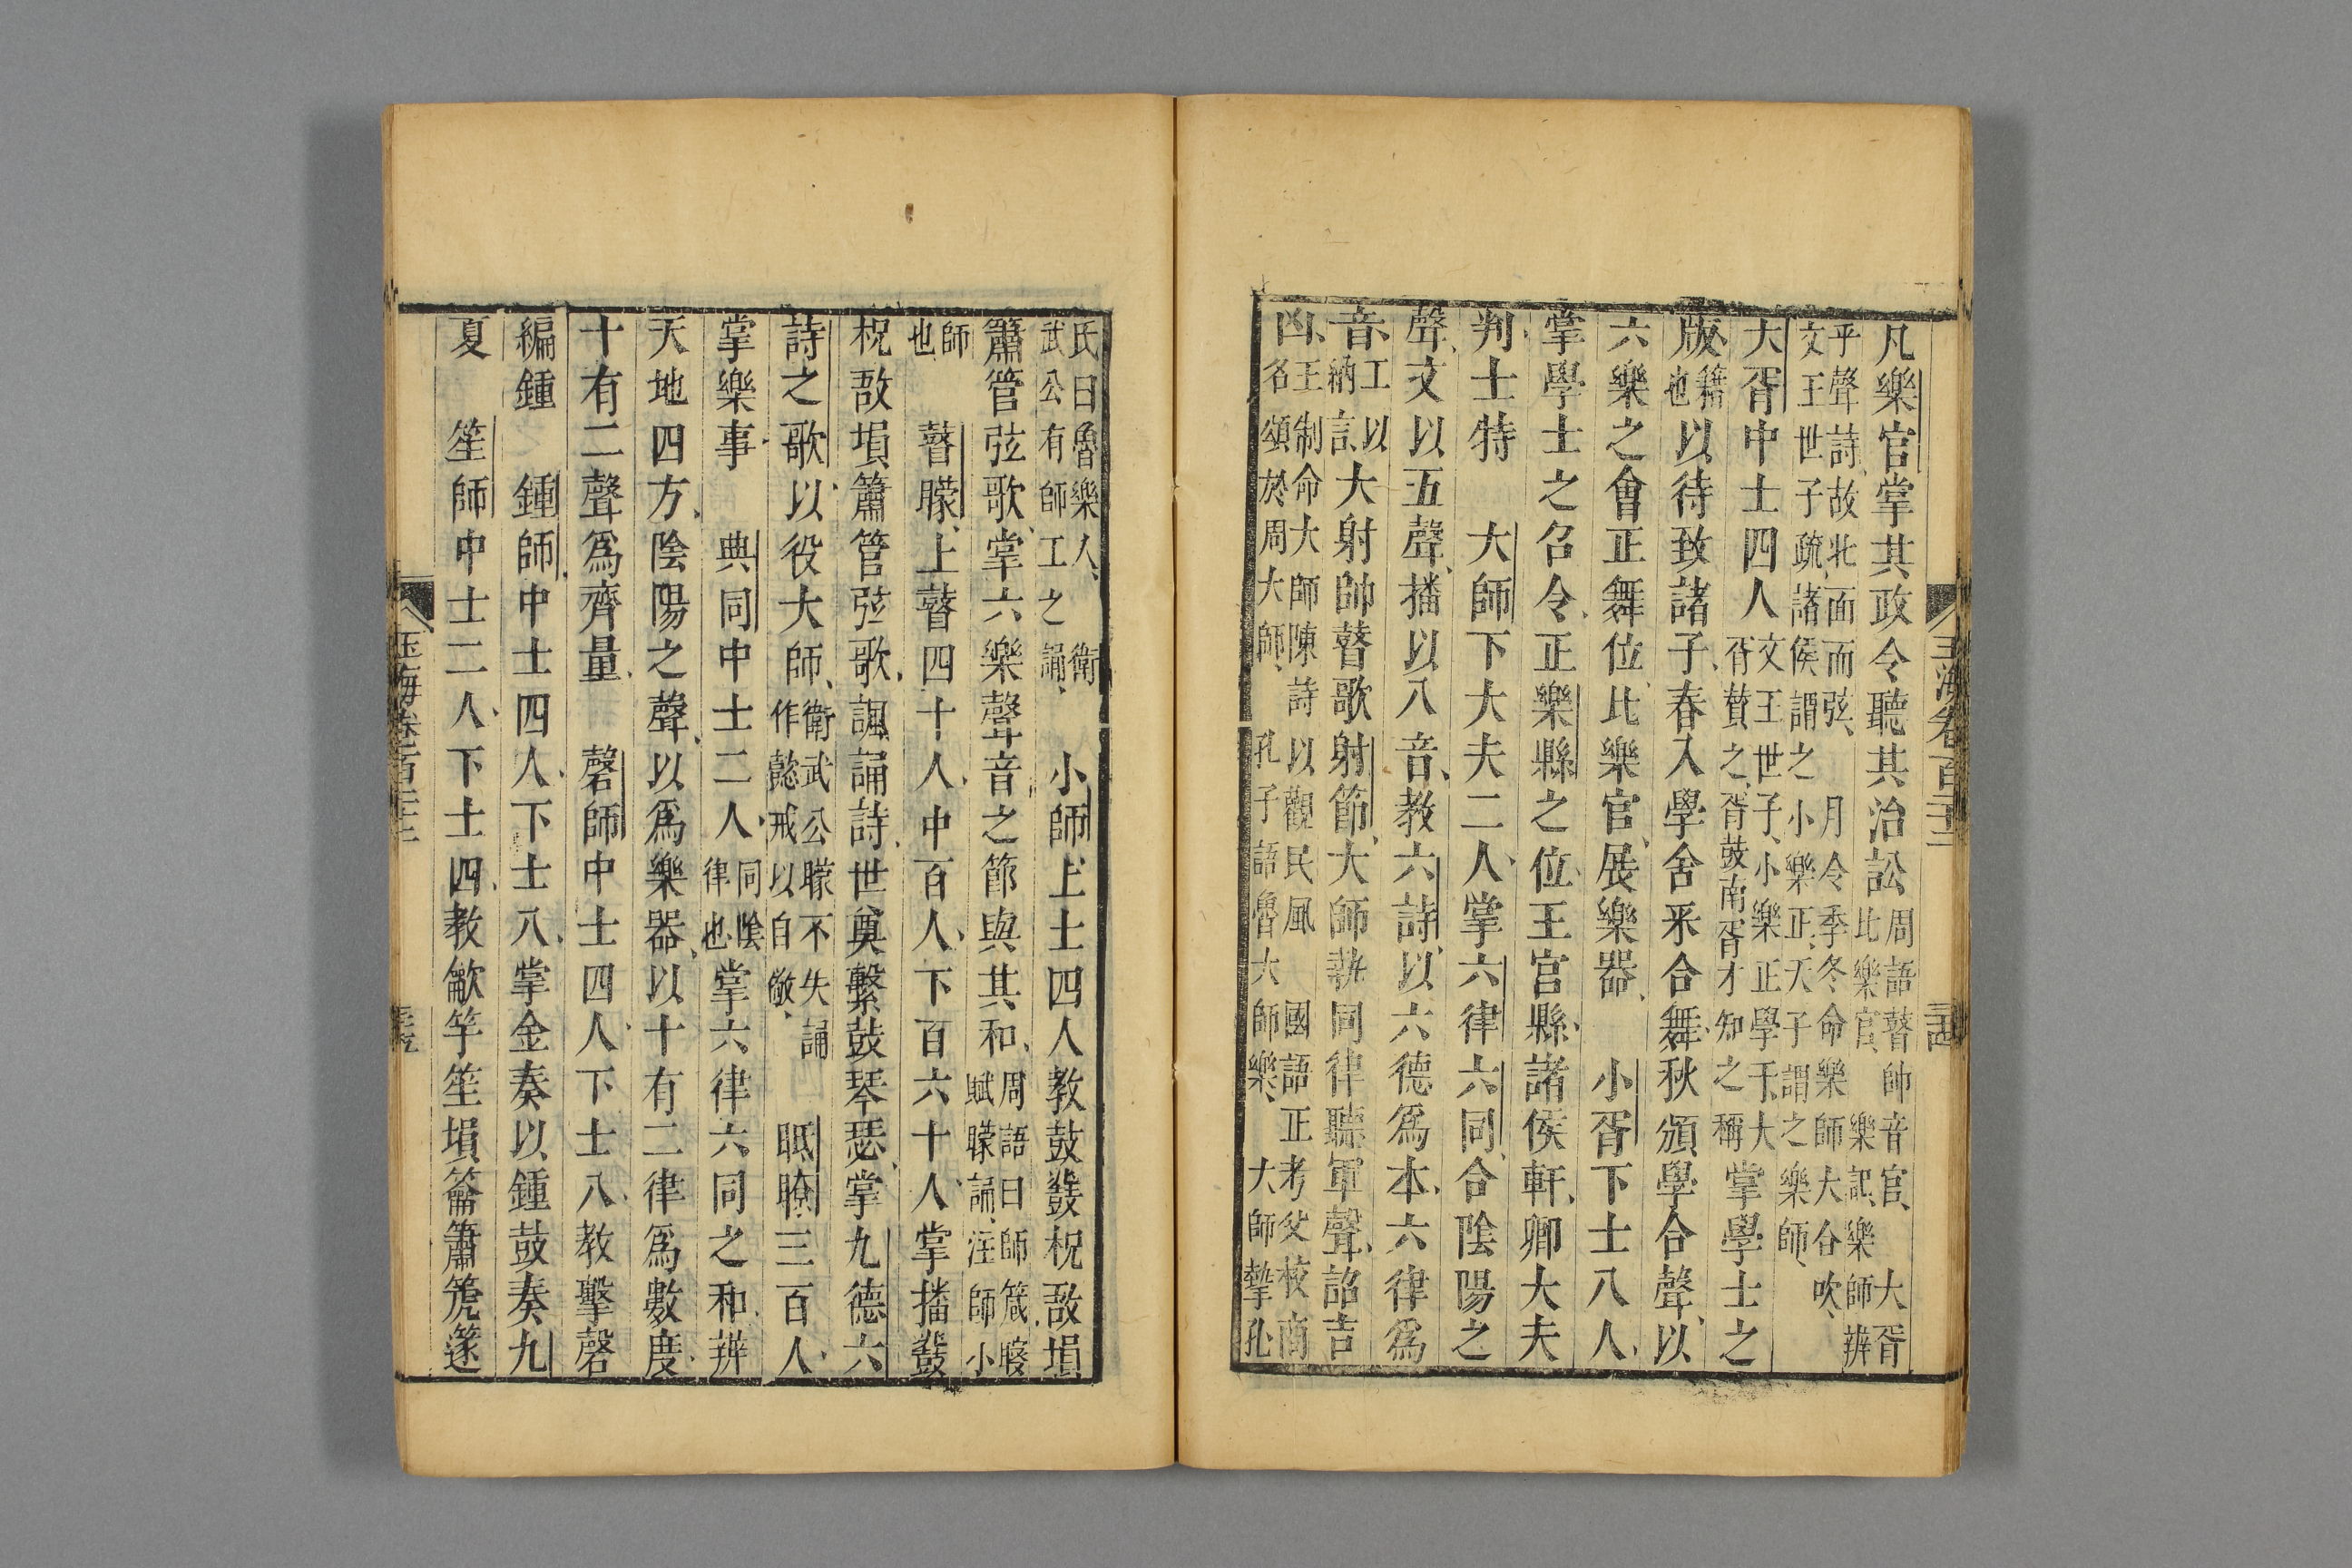 凡樂官掌其政令聽其治訟周語瞽帥音官大胥比樂官樂記樂師辨
乎聲詩故北面而弦月令季冬命樂師大合吹文王世子疏諸侯謂之小樂正天子謂之樂師
大胥中士四人文王世子小樂正學干大胥贊之胥鼓南胥才知之稱掌學士之
版籍也以待致諸子春入學舍釆合舞秋頒學合聲以
六樂之會正舞位比樂官展樂器 小胥下士八人
掌學士之召令正樂縣之位王宮縣諸侯軒卿大夫
判士特 大師下大夫二人掌六律六同合陰陽之
聲文以五聲播以八音教六詩以六德爲本六律爲
音工以納言大射帥瞽歌射節大師執同律聽軍聲詔吉
凶王制命大師陳詩以觀民風國語正考父校商名頌於周大師孔子語魯大師樂大師摯孔
玉海卷百二十二
氏曰魯樂人衛武公有師工之誦 小師上士四人教鼓鼗柷敔塤
簫管弦歌掌六樂聲音之節與其和周語曰師箴瞍賦矇誦注師小
師也 瞽矇上瞽四十人中百人下百六十人掌播鼗
柷敔塤簫管弦歌諷誦詩世奠繫鼓琴瑟掌九德六
詩之歌以役大師衛武公矇不失誦作懿戒以自儆 眡瞭三百人
掌樂事 典同中士二人同陰律也掌六律六同之和辨
天地四方陰陽之聲以爲樂器以十有二律爲數度
十有二聲爲齊量 磬師中士四人下士八教擊磬
編鍾 鍾師中士四人下士八掌金奏以鍾鼓奏九
夏 笙師中士二人下士四教龡竽笙塤籥簫篪篴